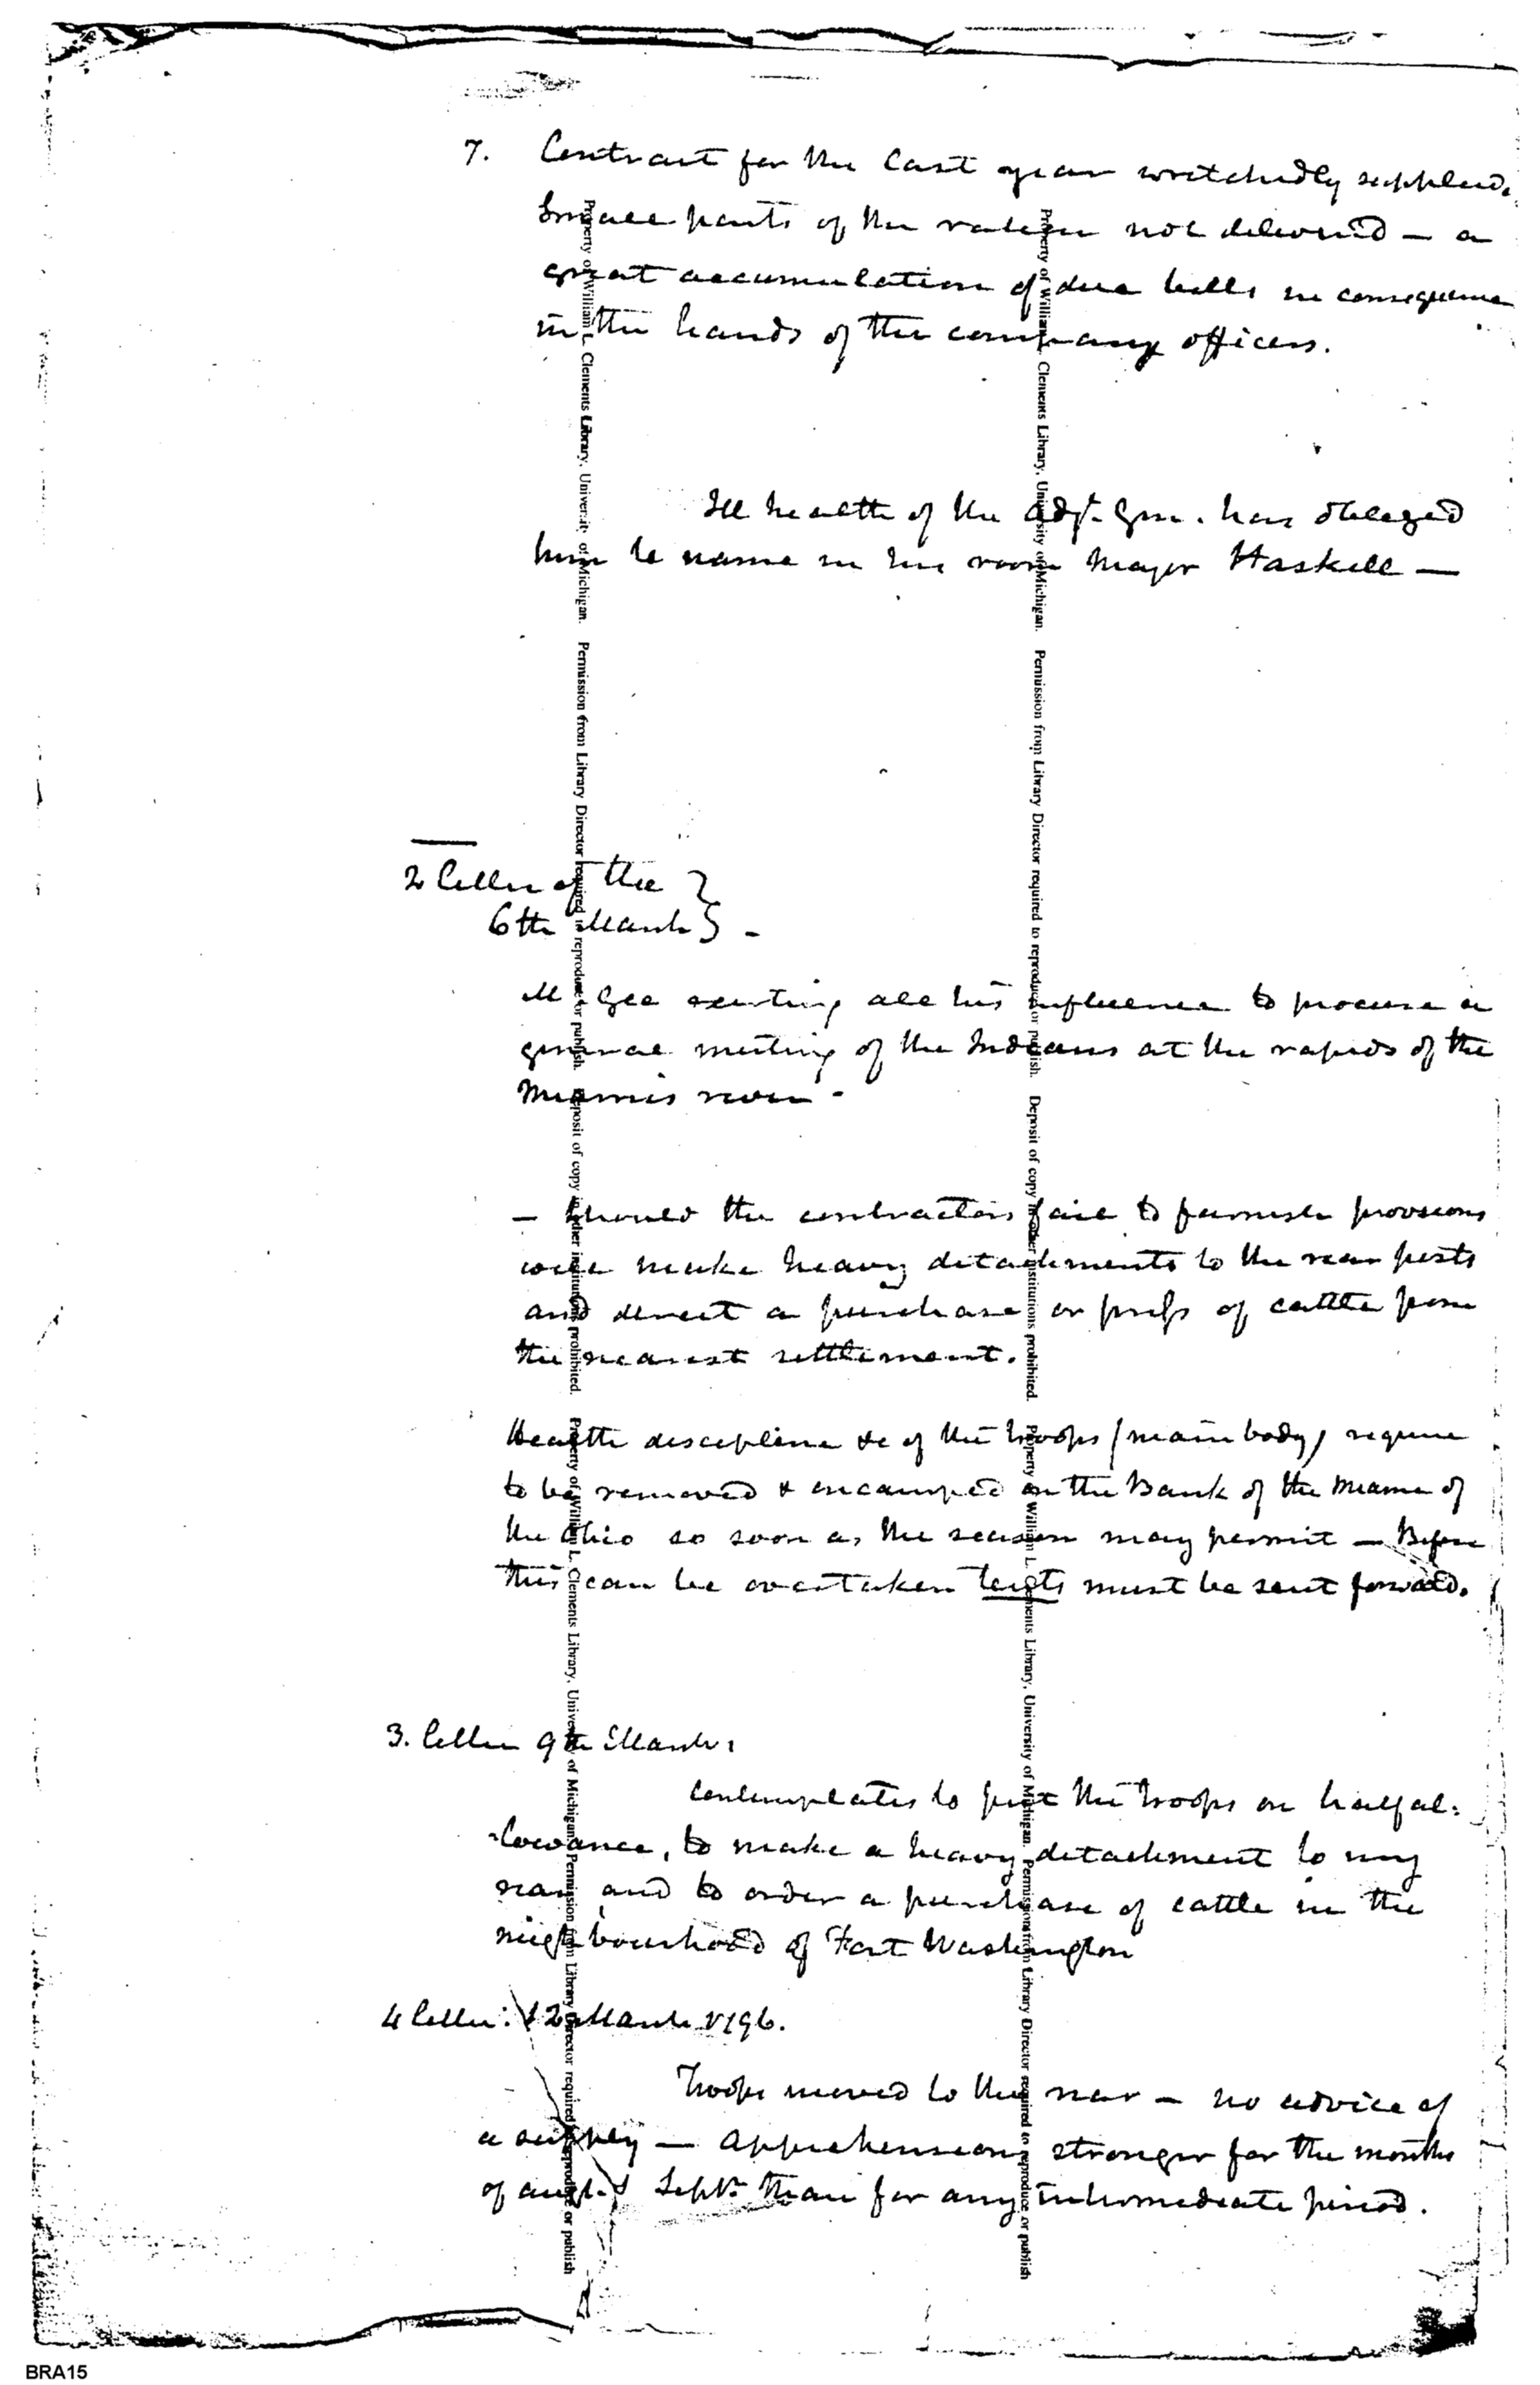 7. Contract for the last year wretchedly supplied.
Small parts of the ration not delivered — a
great accumulation of due bills in consequence
in the hands of the company officers.
Ill health of the Adjt. Gen. has obliged
him to name in his room Major Haskell —
2 letter of the }
6th March } -
M Gee exerting all his influence to procure a
general meeting of the Indians at the rapids of the
Miamis river -
— Should the contractors fail to furnish provisions
will make heavy detachments to the rear posts
and direct a purchase or press of cattle from
the nearest settlement.
Health discipline &c of the troops (main body) require
to be removed & encamped on the Bank of the Miami of
the Ohio so soon as the season may permit — Before
this can be overtaken tents must be sent forward.
3. letter 9th March:
Contemplates to put the troops on half al:
-lowance, to make a heavy detachment to my
rear and to order a purchase of cattle in the
neighbourhood of Fort Washington
4 letter: 12 March 1796.
Troops moved to the rear — no advice of
a supply — apprehensions stronger for the months
of augt. & Sept. than for any intermediate period.
Property of William L. Clements Library, University of Michigan. Permission from Library Director required to reproduce or publish. Deposit of copy in other institutions prohibited. Property of William L. Clements Library, University of Michigan. Permission from Library Director required to reproduce or publish
Property of William L. Clements Library, University of Michigan. Permission from Library Director required to reproduce or publish. Deposit of copy in other institutions prohibited. Property of William L. Clements Library, University of Michigan. Permission from Library Director required to reproduce or publish
BRA15